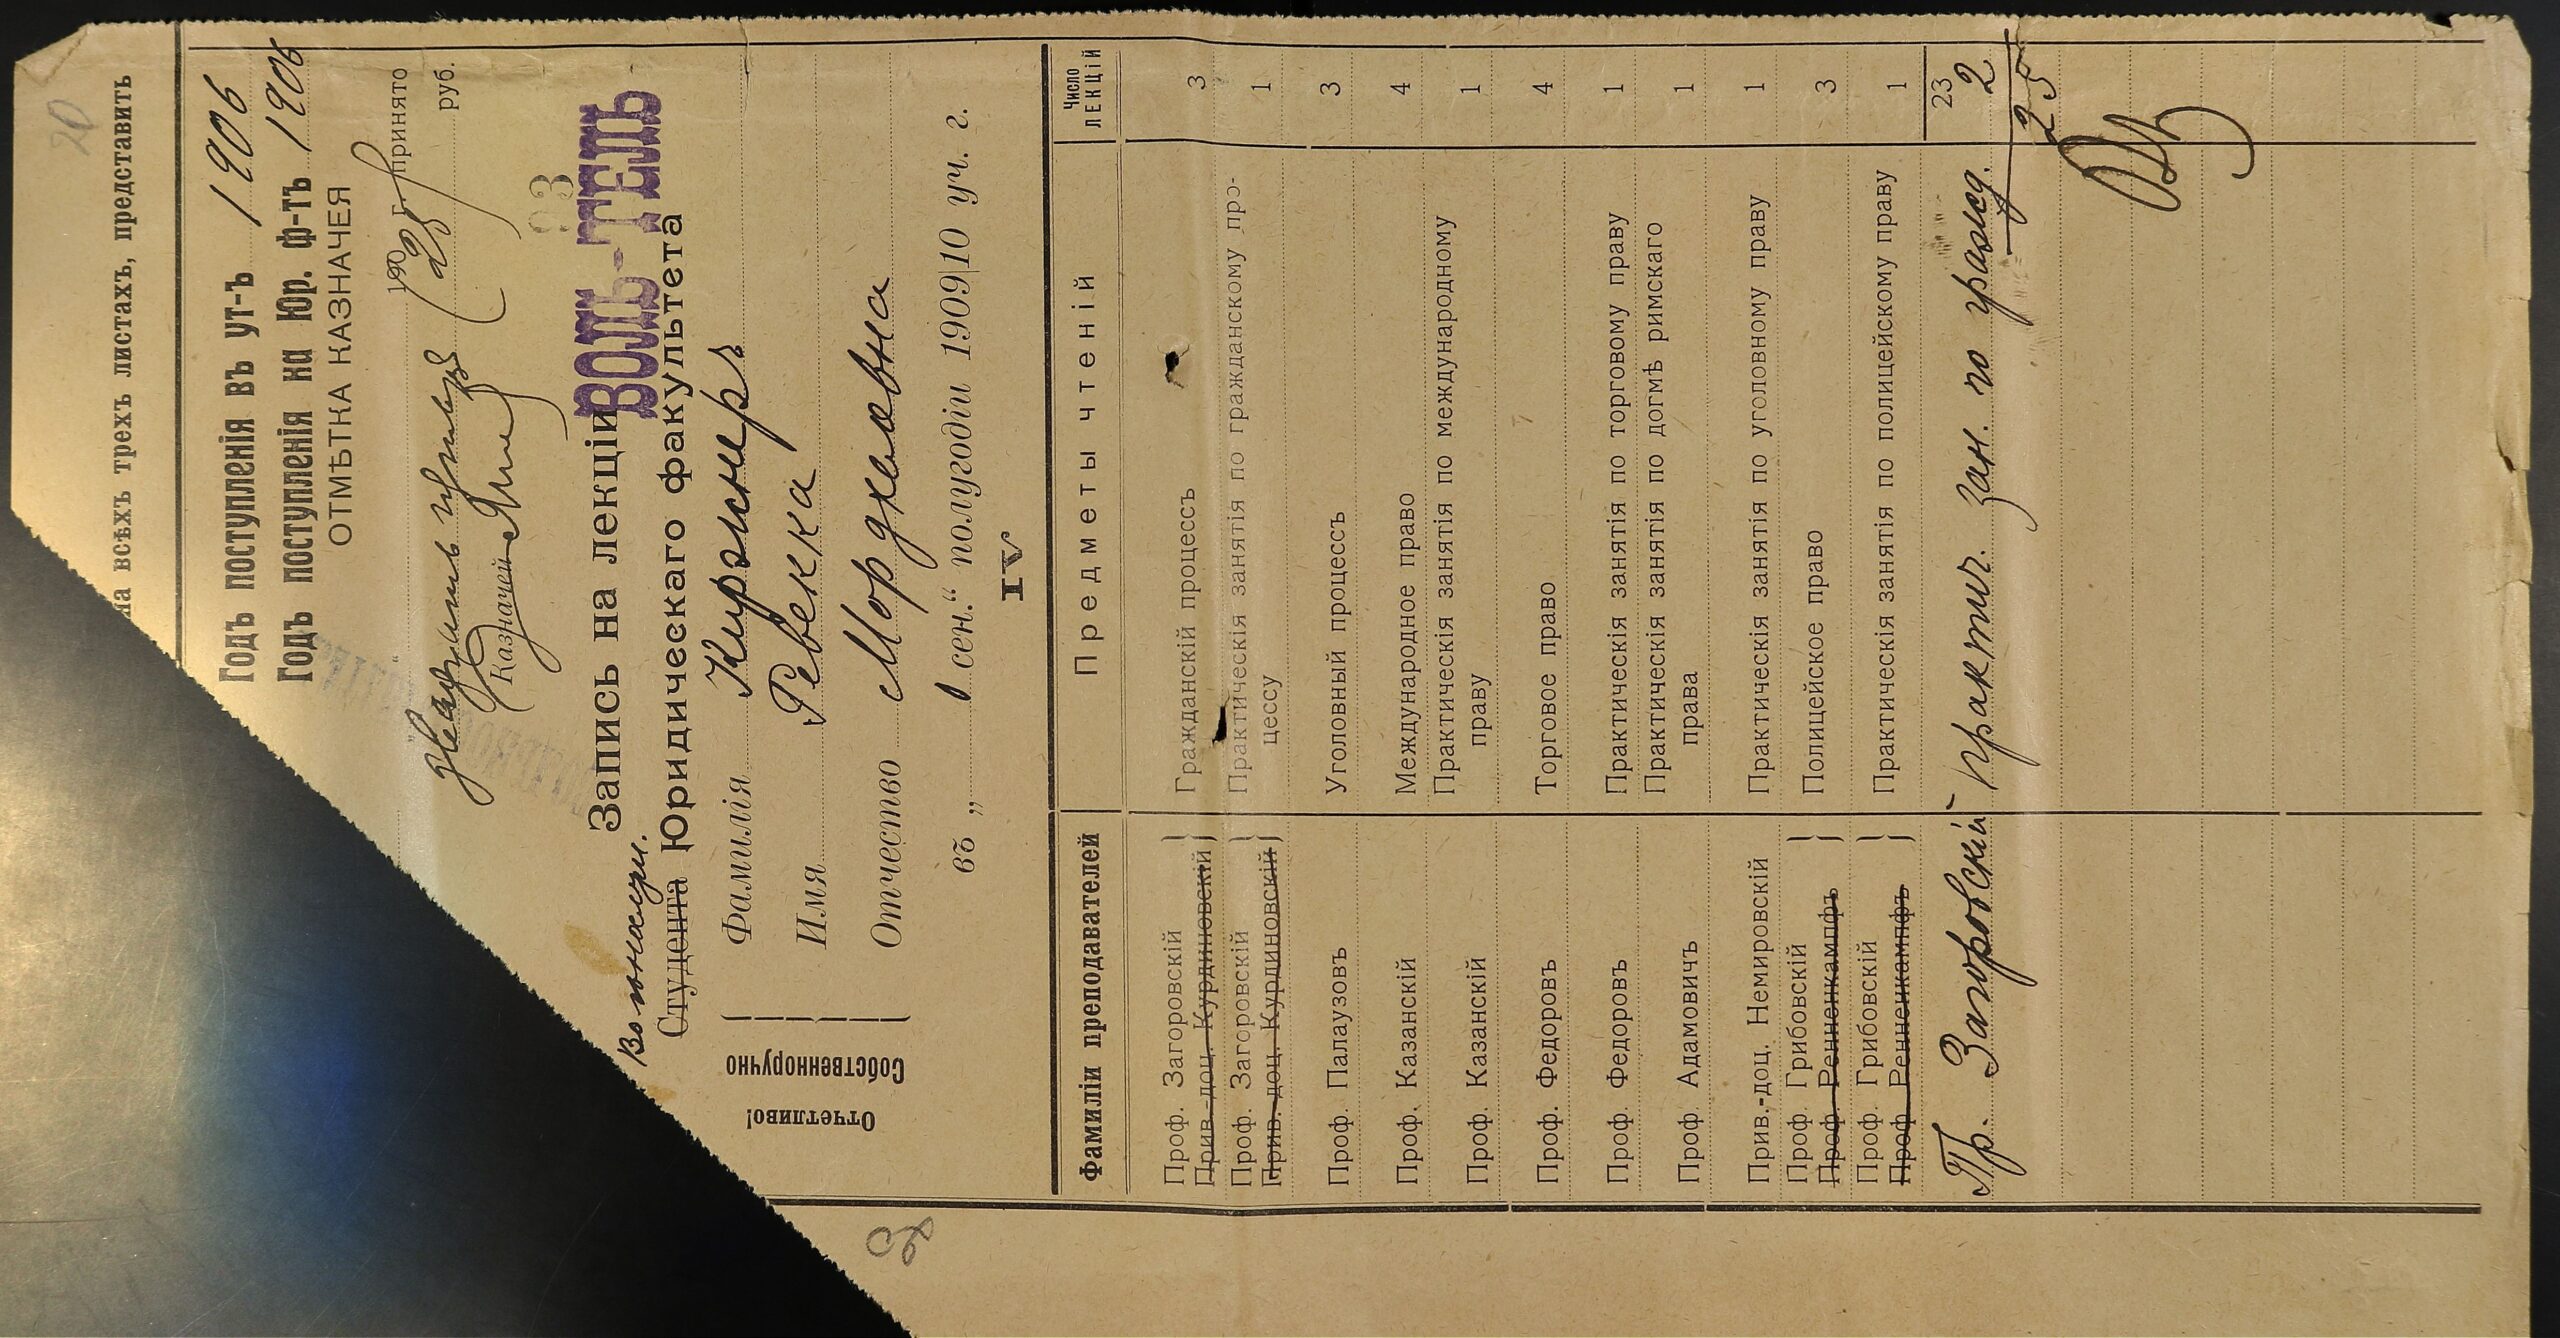 20
на всѣхъ трехъ листахъ, представить
Годъ поступленія въ ут-ъ 1906
Годъ поступленія на Юр. ф-тъ 1906
ОТМѢТКА КАЗНАЧЕЯ
190 г. принято
25 руб.
Казначей
ВОЛЬ-ТЕЛЬ
Запись на лекціи
Вольнослуш.
Студента Юридическаго факультета
Отчетливо!
Собственноручно
Фамилія Киржнеръ
Имя Ревекка
Отчество Мордхелевна
въ „ сен.“ полугодіи 1909|10 уч. г.
IV
Фамиліи преподавателей Предметы чтеній Число лекцій
Проф. Загоровскій Гражданскій процессъ 3
Прив.-доц. Курдиновскій
Проф. Загоровскій Практическія занятія по гражданскому про-
Прив. доц. Курдиновскій цессу 1
Проф. Палаузовъ Уголовный процессъ 3
Проф. Казанскій Международное право 4
Проф. Казанскій Практическія занятія по международному
праву 1
Проф. Федоровъ Торговое право 4
Проф. Федоровъ Практическія занятія по торговому праву 1
Проф Адамовичъ Практическія занятія по догмѣ римскаго
права 1
Прив.-доц. Немировскій Практическія занятія по уголовному праву 1
Проф. Грибовскій Полицейское право 3
Проф. Ренненкампфъ
Проф. Грибовскій Практическія занятія по полицейскому праву 1
Проф Ренненкампфъ
23
Пр. Загоровскій практич. зан. по гражд. 2
25